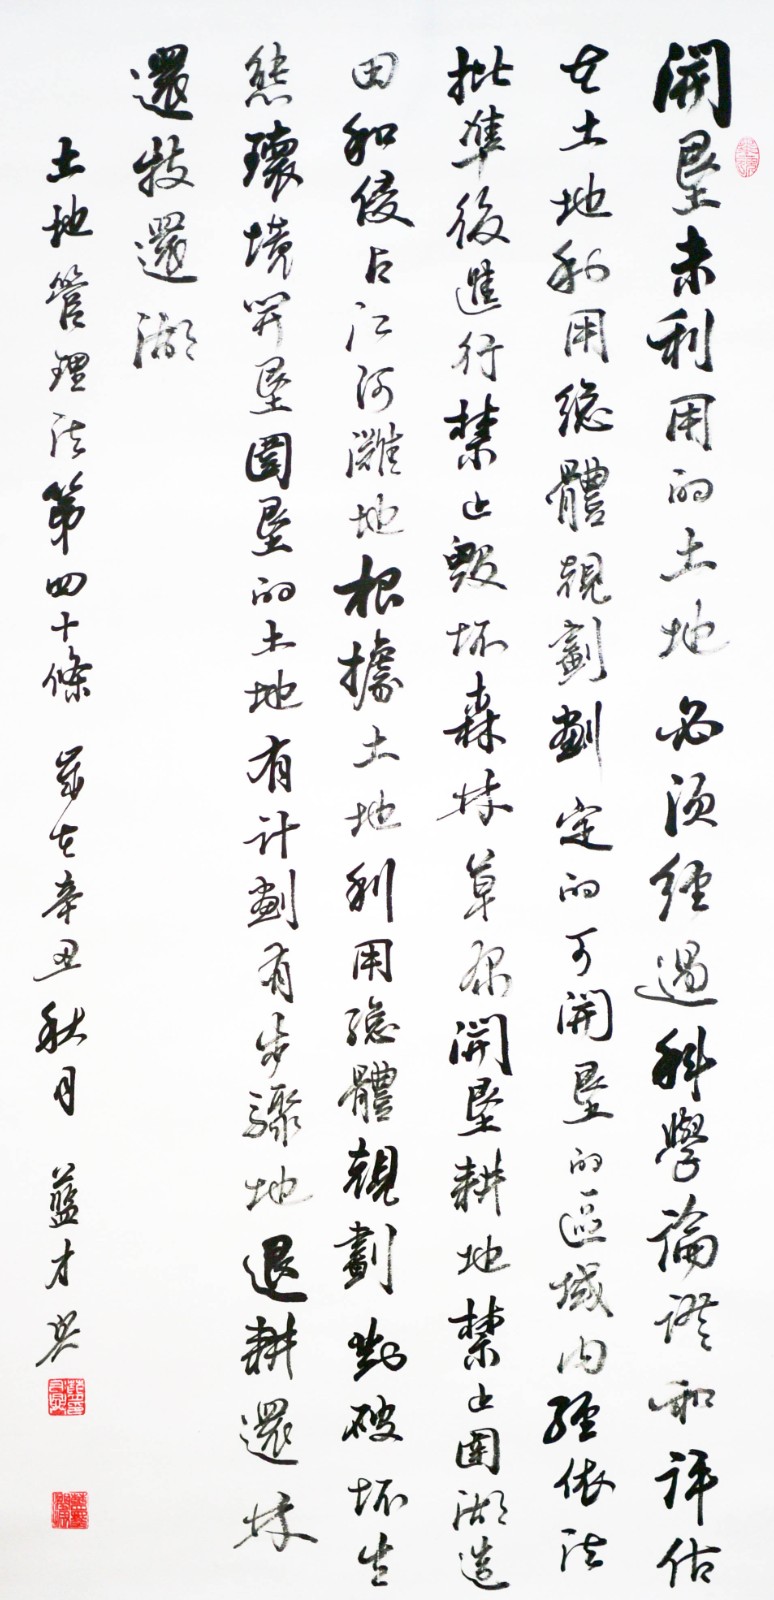 開墾未利用的土地必須經過科學論證和評估
在土地利用總體規劃劃定的可開墾的區域内經依法
批準後進行禁止毀壞森林草原開墾耕地禁止圍湖造
田和侵占江河灘地根據土地利用總體規劃對破壞生
態環境開墾圍墾的土地有計劃有步驟地退耕還林
還牧還湖
土地管理法第四十條 歲在辛丑秋月 藍才興